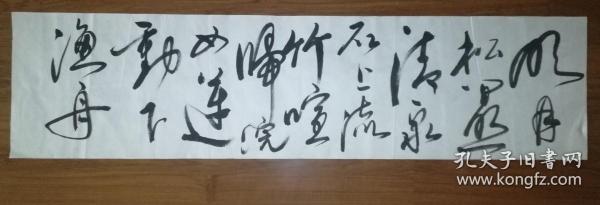 明月
松間照
清泉
石上流
竹喧
歸浣
女蓮
動下
漁舟
孔夫子旧书网
www.kongfz.com